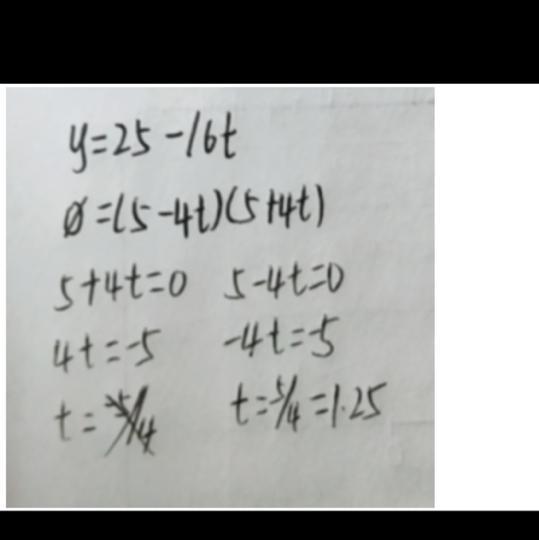 y=25-16t
0=(5-4t)(5+4t)
5+4t=0 5-4t=0
4t=-5 -4t=-5
t= t=5/4=1.25